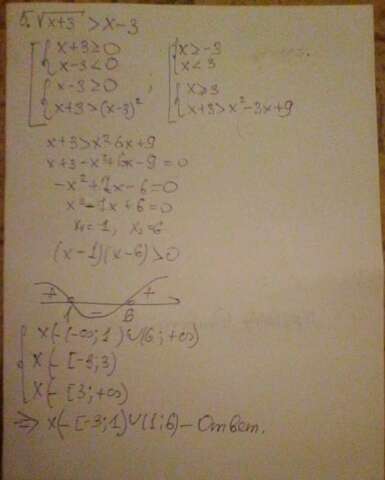 5. √x+3 > x-3
x+3≥0 x>-3
x-3<0 x<3
x-3≥0 , x≥3
x+3>(x-3)² x+3>x²-3x+9
x+3>x²6x+9
x+3-x²+6x-9=0
-x²+7x-6=0
x²-7x+6=0
x₁=1, x₂=6
(x-1)(x-6)>0
+ - +
1 6
x(-(-∞;1)∪(6;+∞)
x(-[-3;3)
x(-[3;+∞)
⇒ x(-[-3;1)∪(1;6) - Ответ.